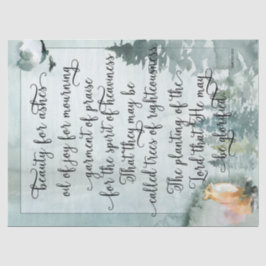 beauty for ashes
oil of joy for mourning
garment of praise
for the spirit of heaviness
That they may be
called trees of righteousness
The planting of the
Lord that He may
be glorified